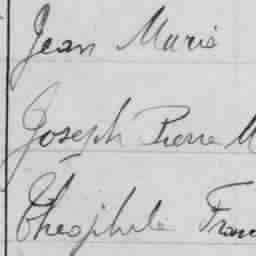 Jean Marie
Joseph Pierre M
Théophile Fran